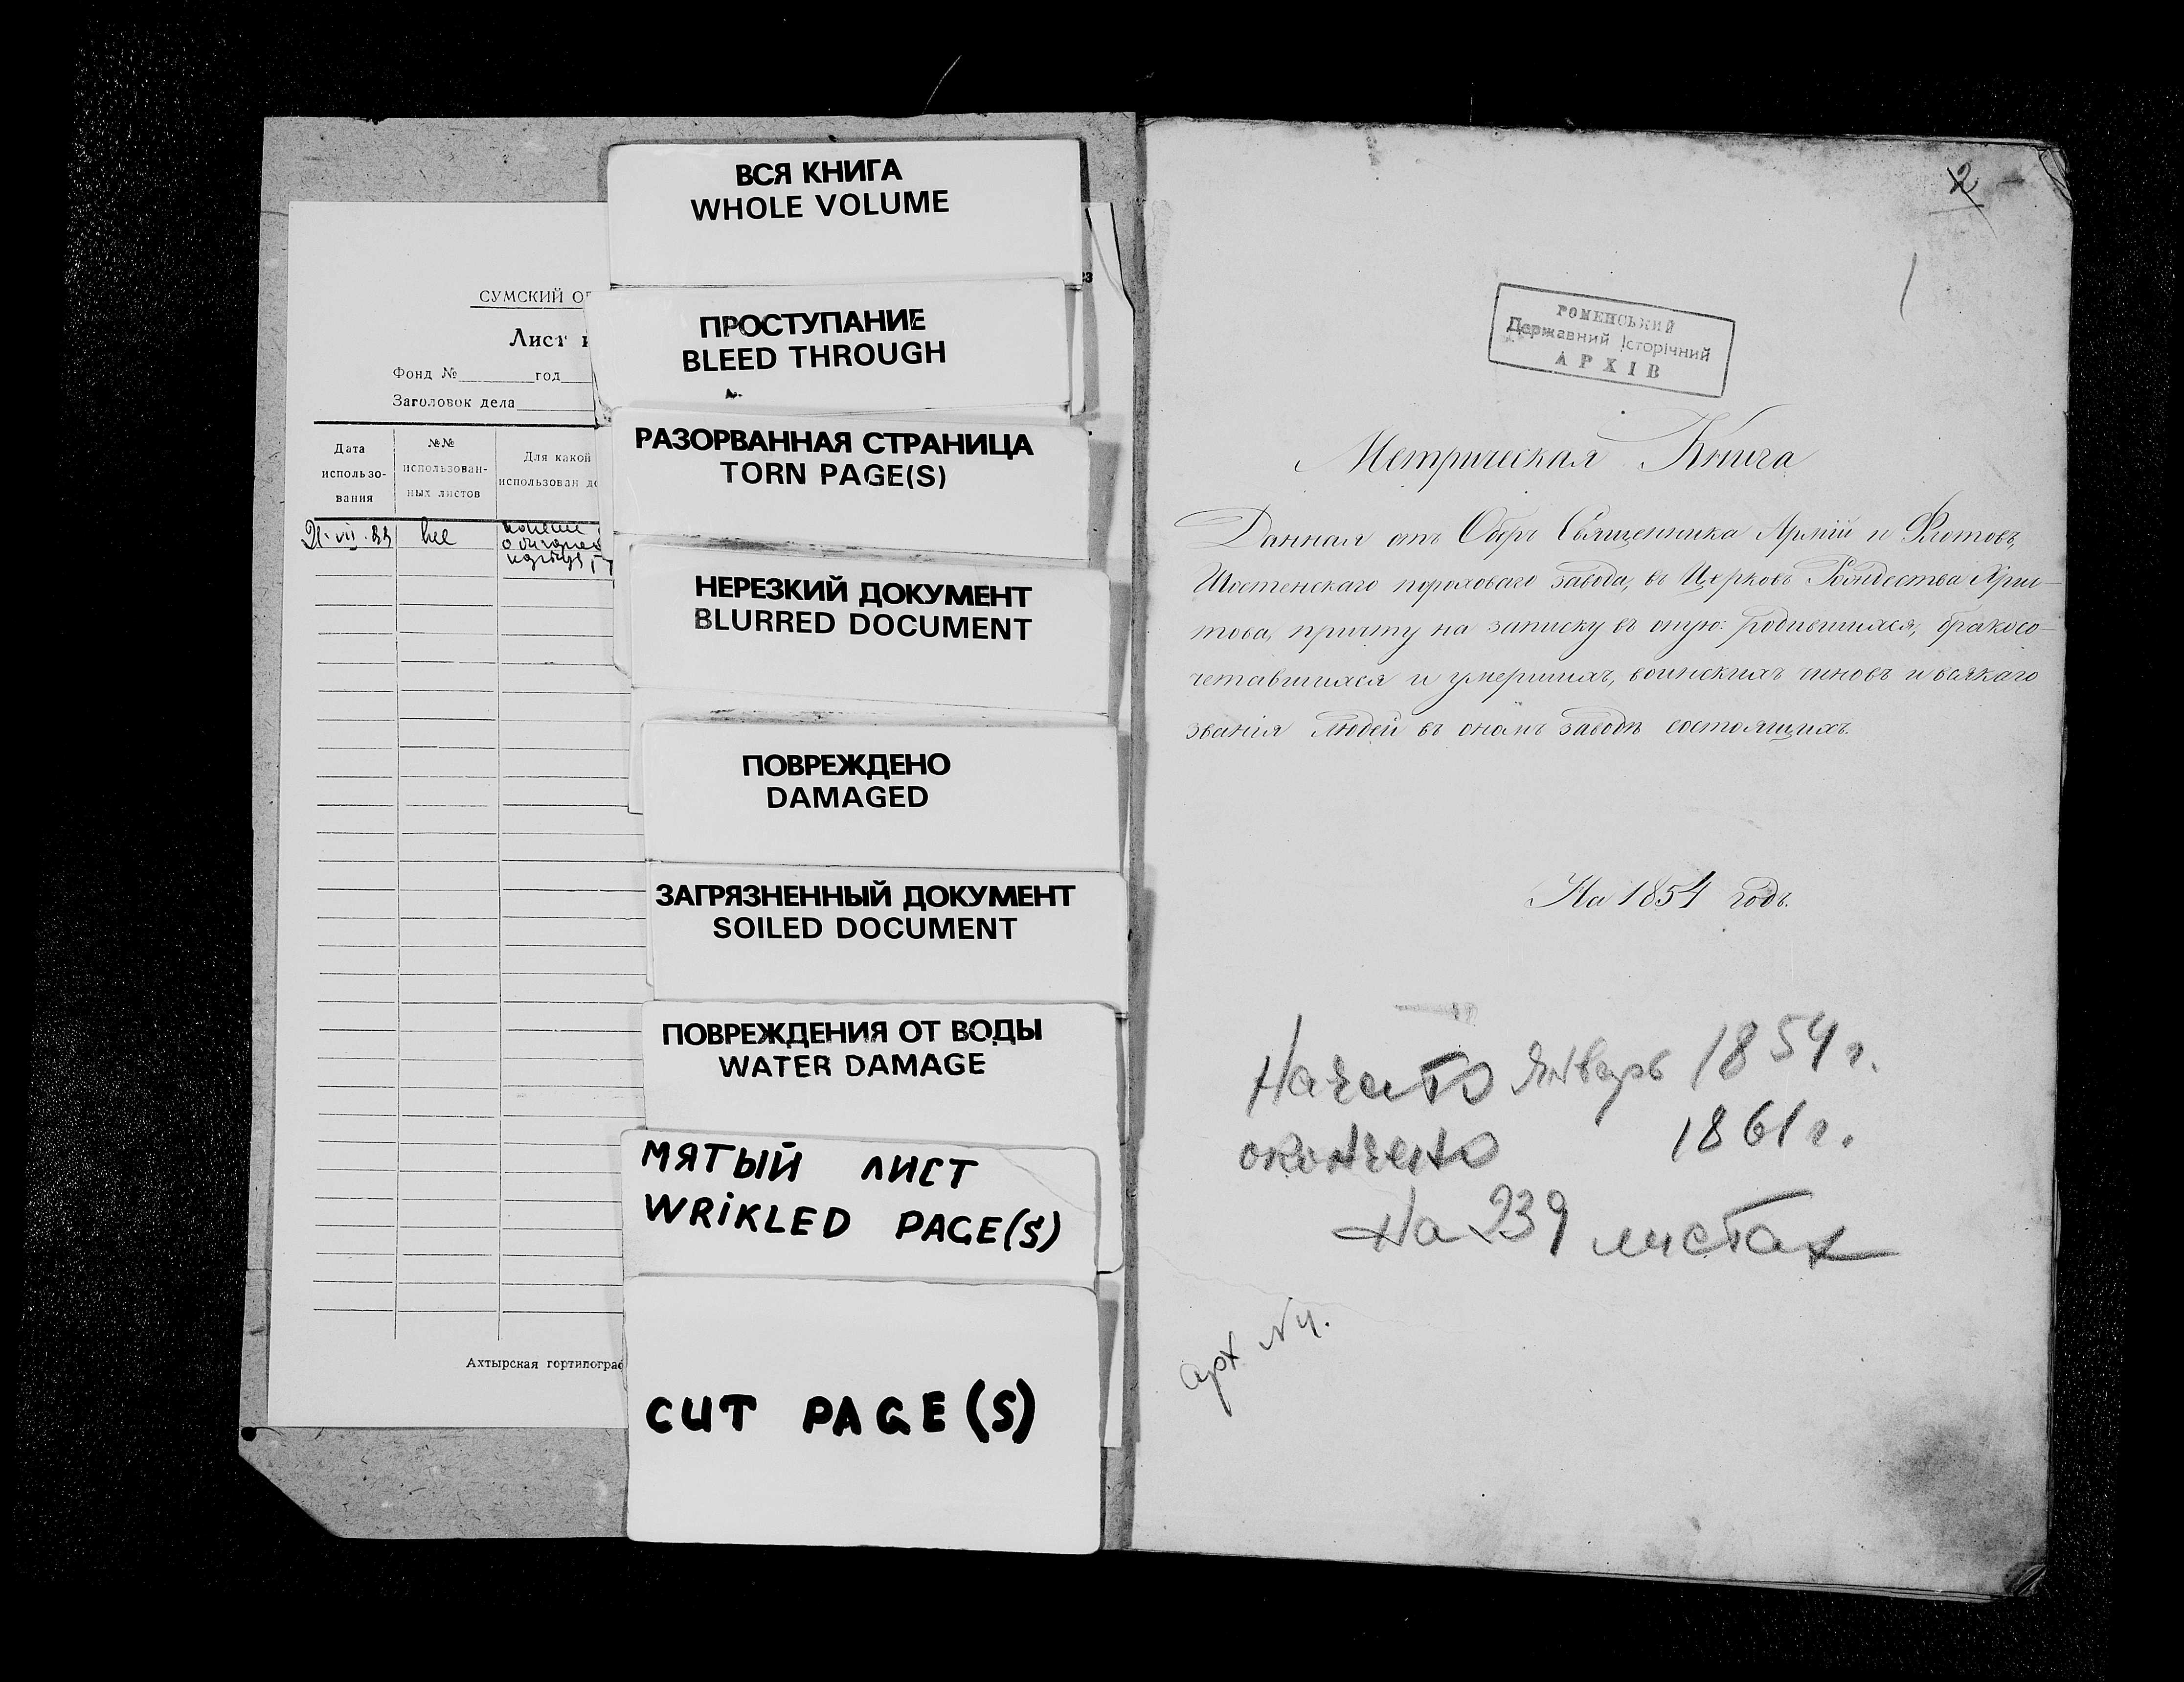 СУМСКИЙ ОБ
Лист и
Фонд № год
Заголовок дела
Дата использо-вания
№№ использован-ных листов
Для какой
использован до
21.VII.83
все
Ахтырская гортипограф
ВСЯ КНИГА
WHOLE VOLUME
ПРОСТУПАНИЕ
BLEED THROUGH
РАЗОРВАННАЯ СТРАНИЦА
TORN PAGE(S)
НЕРЕЗКИЙ ДОКУМЕНТ
BLURRED DOCUMENT
ПОВРЕЖДЕНО
DAMAGED
ЗАГРЯЗНЕННЫЙ ДОКУМЕНТ
SOILED DOCUMENT
ПОВРЕЖДЕНИЯ ОТ ВОДЫ
WATER DAMAGE
МЯТЫЙ ЛИСТ
WRiKLED PAGE(S)
CUT PAGE(S)
2
1
РОМЕНСЬКИЙ
Державний Історічний
АРХІВ
Метрическая Книга
Данная отъ Оберъ Священника Армiй и Флотовъ,
Шостенскаго пороховаго завода, въ Церковь Рождества Хрис-
това, причту на записку въ оную: родившихся, бракосо-
четавшихся и умершихъ, воинскихъ чиновъ и всякаго
званiя людей въ ономъ заводѣ состоящихъ.
На 1854 годъ.
Начато январь 1854 г.
окончено 1861 г.
на 239 листах
арх N 4.